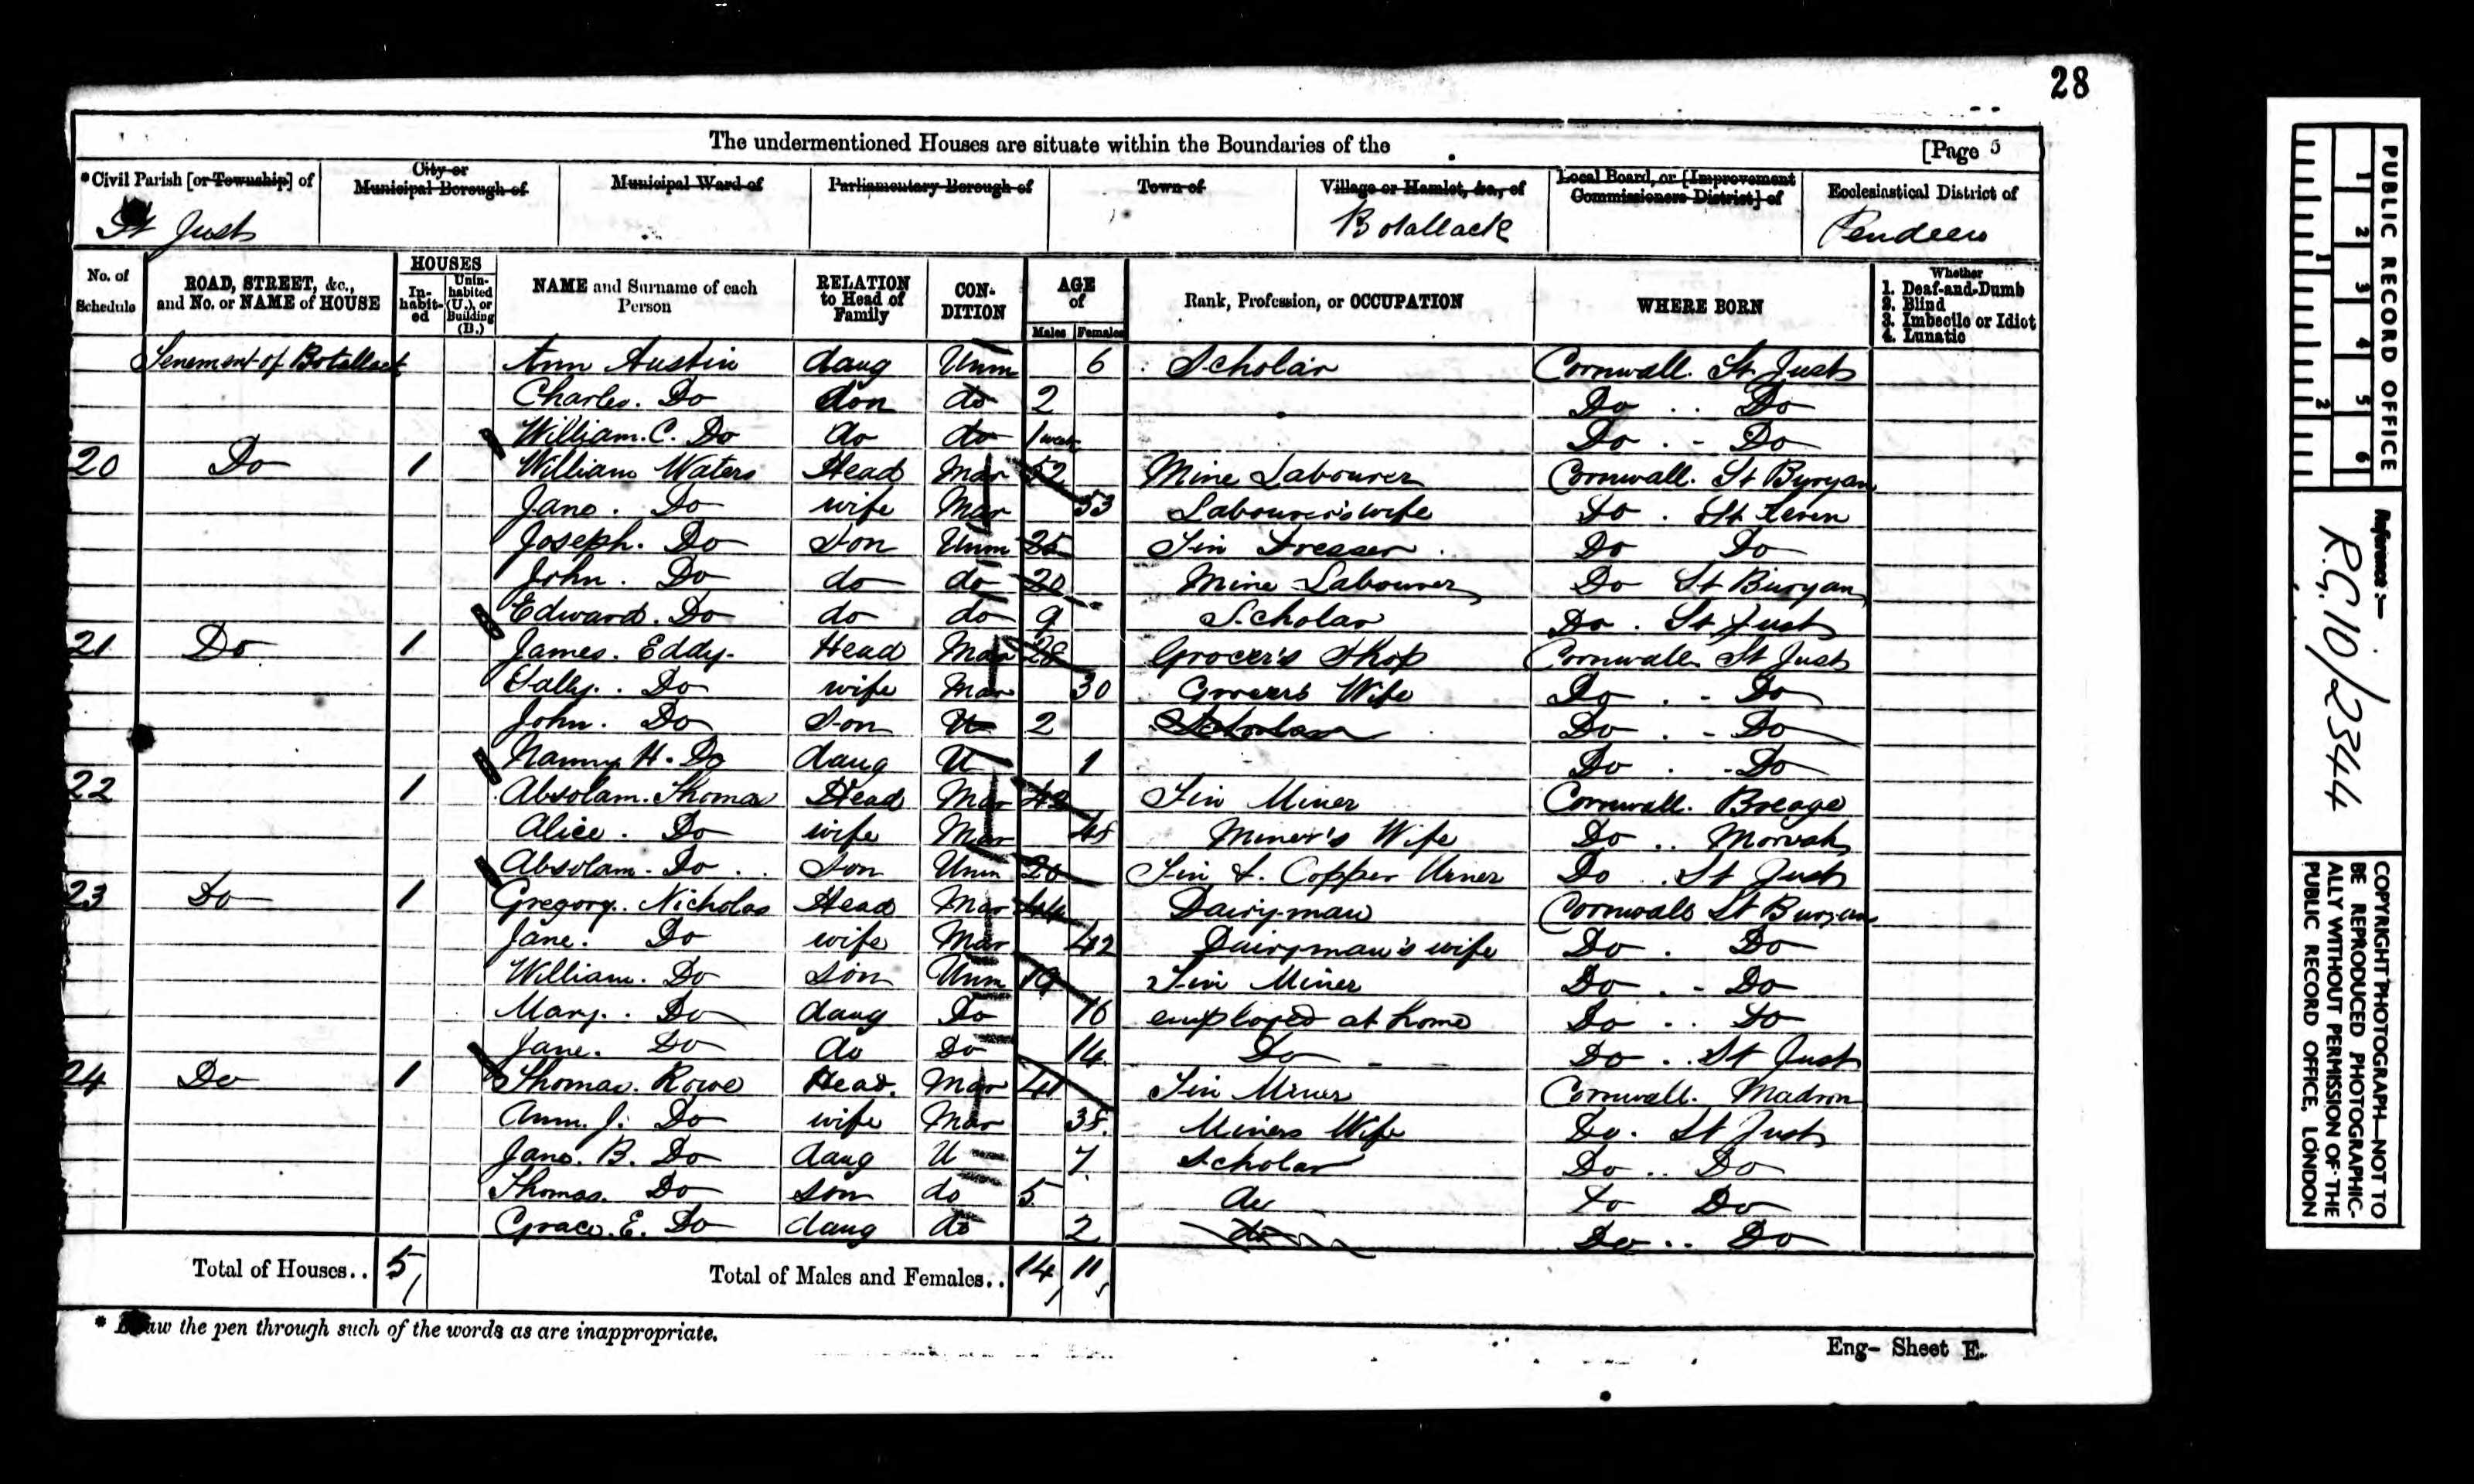 28
The undermentioned Houses are situate within the Boundaries of the [Page 5
*Civil Parish [or Township] of
City or Municipal Borough of
Municipal Ward of
Parliamentary Borough of
Town of
Village or Hamlet, &c., of
Local Board, or [Improvement Commissioners District] of
Ecclesiastical District of
St Just Botallack Pendeen
No. of Schedule
ROAD, STREET, &c., and No. or NAME of HOUSE
HOUSES
In-habit-ed
Unin-habited (U.), or Building (B.)
NAME and Surname of each Person
RELATION to Head of Family
CON-DITION
AGE of
Males Females
Rank, Profession, or OCCUPATION
WHERE BORN
Whether
1. Deaf-and-Dumb
2. Blind
3. Imbecile or Idiot
4. Lunatic
Tenement of Botallack Ann Austin daug Unm 6 Scholar Cornwall. St Just
Charles. Do son do 2 Do .. Do
William. C. Do do do 1 week Do . - Do
20 Do 1 William Waters Head Mar 52 Mine Labourer Cornwall. St Buryan
Jane. Do wife Mar 53 Labourer's wife Do . St Leven
Joseph. Do Son Unm 25 Tin Dresser Do Do
John. Do do do 20 Mine Labourer Do St Buryan
Edward. Do do do 9 Scholar Do . St Just
21 Do 1 James. Eddy. Head Mar 28 Grocer's Shop Cornwall St Just
Sally. Do wife Mar 30 Grocers Wife Do . - Do
John. Do Son U 2 Scholar Do . - Do
Nanny H. Do daug U 1 Do . - Do
22 1 Absolam. Thomas Head Mar Tin Miner Cornwall. Breage
Alice. Do wife Mar 48 Miner's Wife Do .. Morvah
Absolam. Do Son Unm 20 Tin & Copper Miner Do . St Just
23 Do 1 Gregory. Nicholas Head Mar 44 Dairyman Cornwall St Buryan
Jane. Do wife Mar 42 Dairyman's wife Do . Do
William. Do Son Unm 19 Tin Miner Do . - Do
Mary. Do daug Do 16 employed at home Do .. Do
Jane. Do do Do 14 Do Do .. St Just
24 Do 1 Thomas. Rowe Head. Mar 41 Tin Miner Cornwall. Madron
Ann. J. Do wife Mar 38. Miners Wife Do. St Just
Jane. B. Do daug U 7 Scholar Do .. Do
Thomas. Do son do 5 do Do Do
Grace. E. Do daug do 2 do Do .. Do
Total of Houses.. 5 Total of Males and Females.. 14 11
* Draw the pen through such of the words as are inappropriate.
Eng- Sheet E.
PUBLIC RECORD OFFICE
1 2 3 4 5 6
1 2
Reference :—
R.G. 10/2344
COPYRIGHT PHOTOGRAPH—NOT TO
BE REPRODUCED PHOTOGRAPHIC-
ALLY WITHOUT PERMISSION OF THE
PUBLIC RECORD OFFICE, LONDON